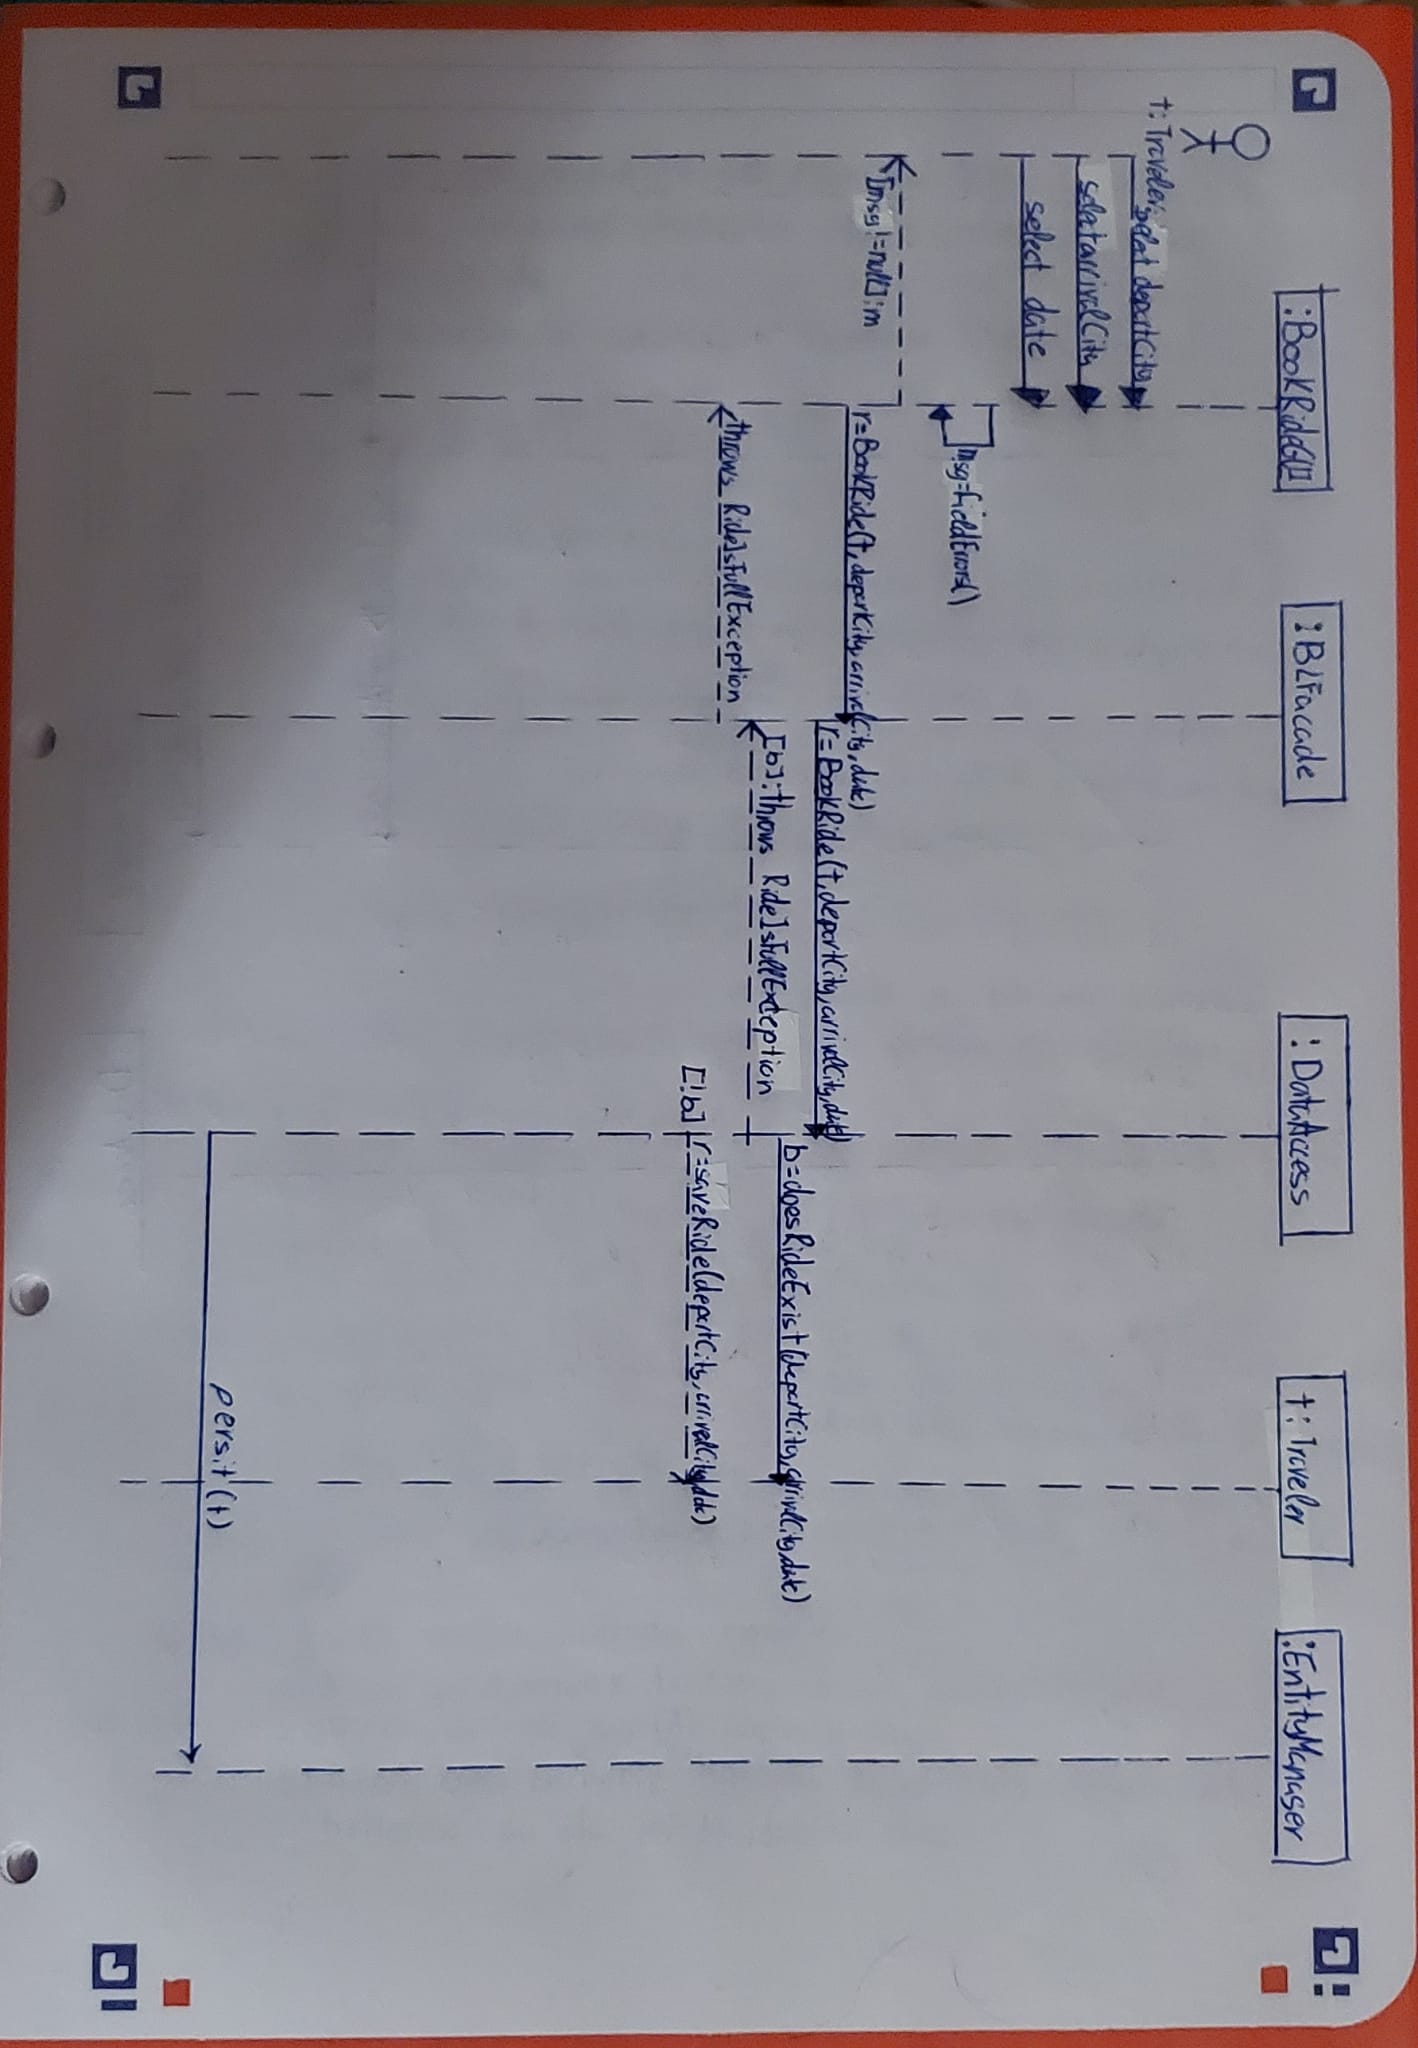 t:Traveler
:BookRideGUI
:BLFacade
:DataAccess
t:Traveler
:EntityManager
select departCity
select arrivalCity
select date
msg=fieldErrors()
[msg!=null]:m
r=BookRide(t,departCity,arrivalCity,date)
r=BookRide(t,departCity,arrivalCity,date)
b=doesRideExist(departCity,arrivalCity,date)
[b]:throws RideIsFullException
throws RideIsFullException
[!b] r=saveRide(departCity,arrivalCity,date)
persit(t)